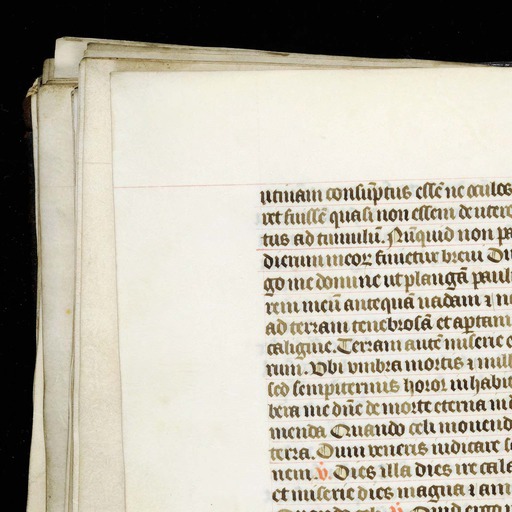 utinam consūptus essē ne oculos
ret fuissē quasi non essem de utero
tus ad tumulū. Nūquid non pa
dierum meoꝝ finietur breui Di
go me domine ut plangā paulu
rem meū antequā uadam ⁊ no
ad terram tenebrosā et apertam
caligine. Terram autē miserie e
rum. Vbi vmbra mortis ⁊ null
sed sempiternus horror inhabit
bera me dn̄e de morte eterna in d
menda Quando celi mouend
terra. Dum veneris iudicare se
nem. v̄. Dies illa dies ire cala
et miserie dies magna ⁊ am
v̄. Quid ergo